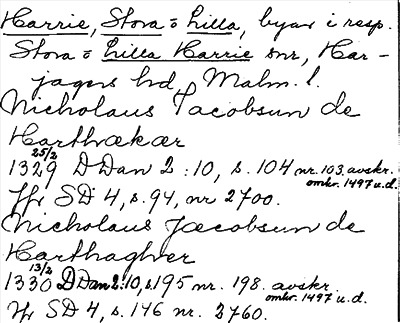 Harrie, Stora o Lilla, byar i resp.
Stora o Lilla Harrie snr, Har-
jagers hd, Malm. l.
Nicholaus Jacobsun de
Harthækær
1329 25/2 D Dan 2:10, s. 104 nr. 103. avskr.
omkr. 1497 u.d.
Jfr SD 4, s. 94, nr 2700.
Nicholaus Jacobsun de
Harthagher
1330 13/2 D Dan 2:10, s 195 nr. 198. avskr.
omkr. 1497 u.d.
Jfr SD 4, s. 146 nr. 2760.